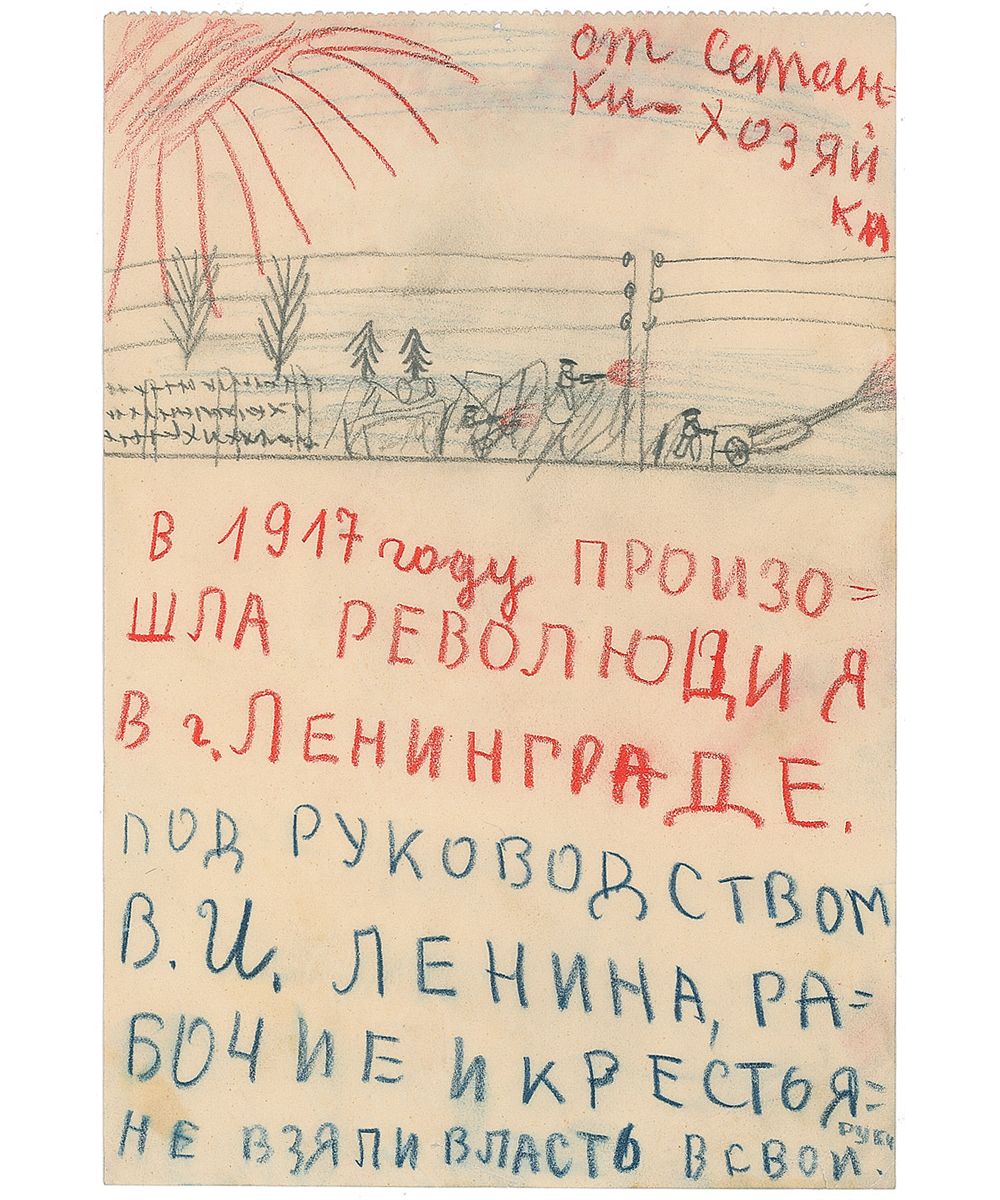 от Сетан=
ки-хозяй
ки
В 1917 году ПРОИЗО=
ШЛА РЕВОЛЮЦИЯ
В г. ЛЕНИНГРАДЕ.
ПОД РУКОВОДСТВОМ
В. И. ЛЕНИНА, РА=
БОЧИЕ И КРЕСТЬЯ=
НЕ ВЗЯЛИ ВЛАСТЬ В СВОИ
РУКИ.